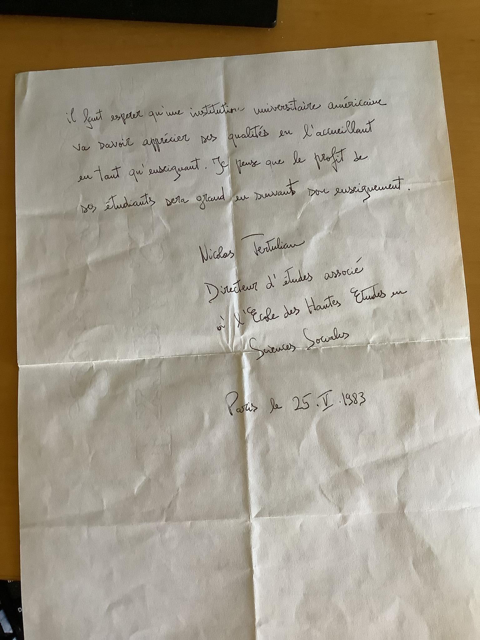 il faut esperer qu'une institution universitaire américaine
va savoir apprécier ses qualités en l'accueillant
en tant qu'enseignant. Je pense que le profit de
ses étudiants sera grand en suivant son enseignement.
Nicolas Tertulian
Directeur d'études associé
à l'Ecole des Hautes Etudes en
Sciences Sociales
Paris le 25.V.1983